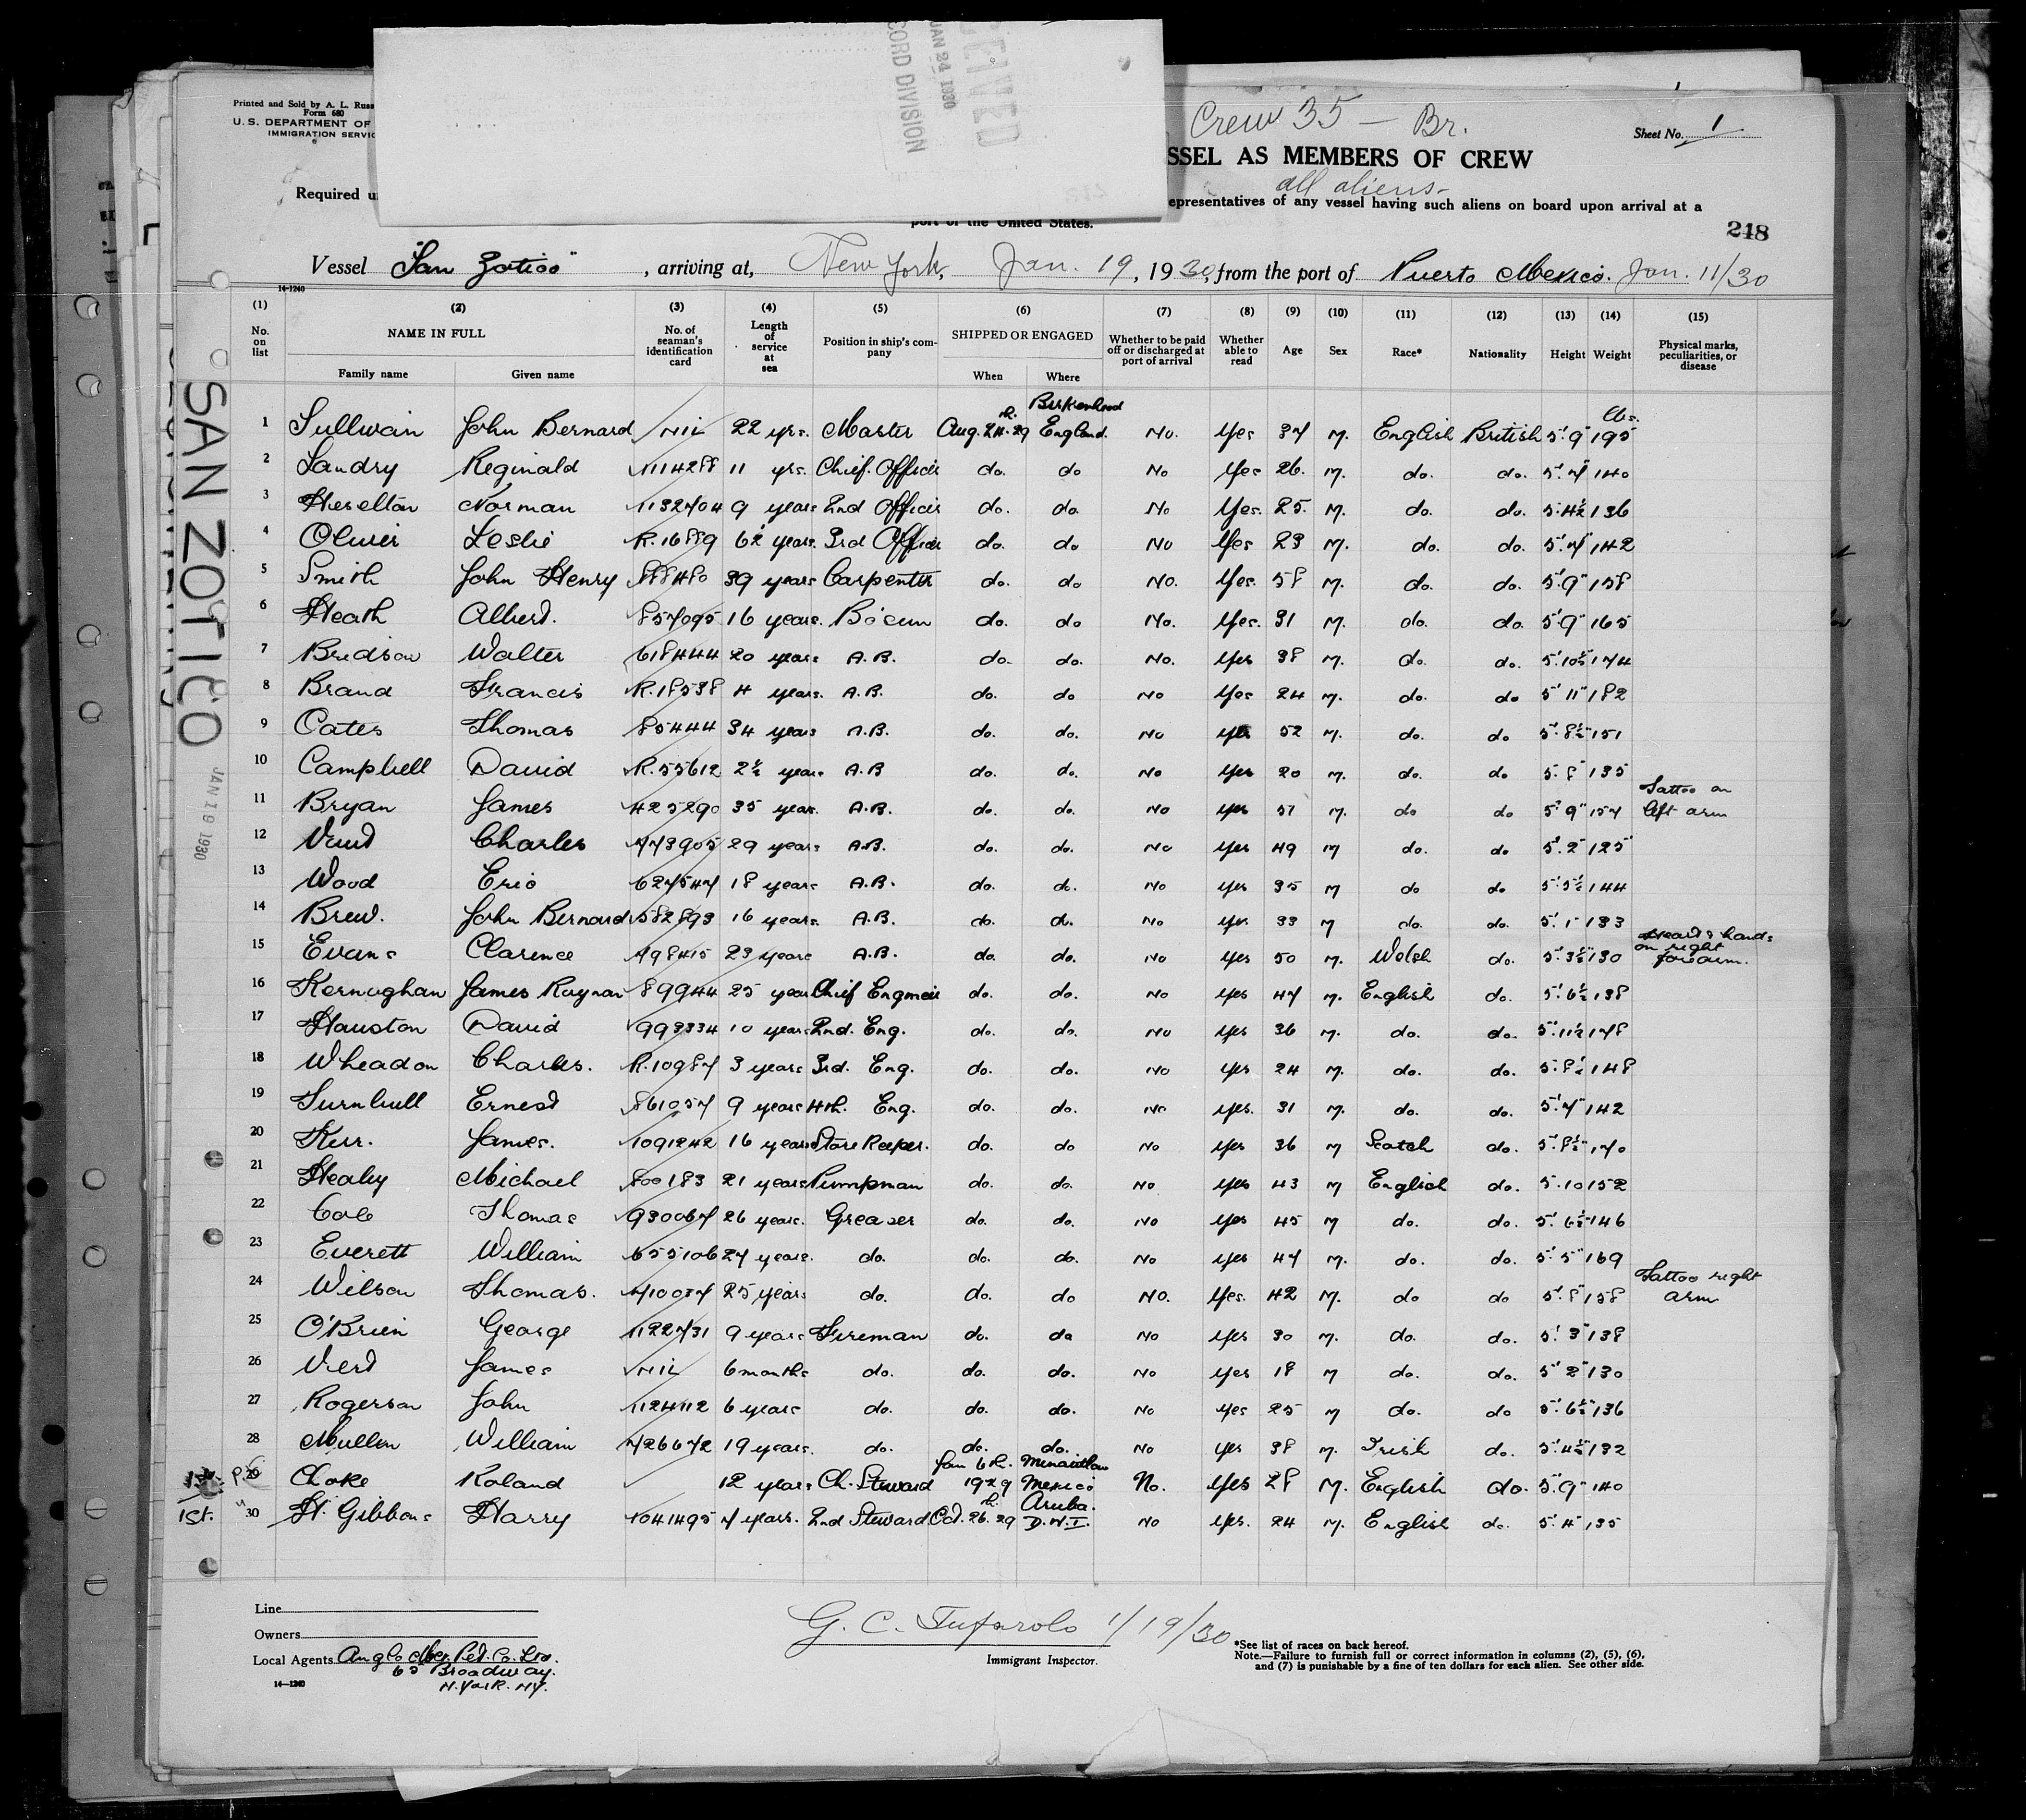 RECEIVED
JAN 24 1930
RECORD DIVISION
Printed and Sold by A. L. Russ
Form 680
U. S. DEPARTMENT OF
IMMIGRATION SERVIC
Crew 35 — Br.
Sheet No. 1
SSEL AS MEMBERS OF CREW
all aliens-
Required u
epresentatives of any vessel having such aliens on board upon arrival at a
port of the United States.
248
Vessel "San Zotico", arriving at, New York, Jan. 19, 1930, from the port of Puerto Mexico. Jan. 11/30
14-1240
(1) (2) (3) (4) (5) (6) (7) (8) (9) (10) (11) (12) (13) (14) (15)
No. on list NAME IN FULL No. of seaman's identification card Length of service at sea Position in ship's company SHIPPED OR ENGAGED Whether to be paid off or discharged at port of arrival Whether able to read Age Sex Race* Nationality Height Weight Physical marks, peculiarities, or disease
Family name Given name When Where
1 Sullivan John Bernard Nil 22 yrs. Master Aug. 24th. 29 Birkenhead England. No. Yes 37 M. English British 5'.9" 195 lbs.
2 Landry Reginald 1114288 11 yrs. Chief Officer do. do No Yes 26. M. do. do. 5'.7" 140
3 Heselton Norman 1132704 9 years 2nd Officer do. do. No Yes. 25. M. do. do. 5'.4½ 136
4 Oliver Leslie R.16889 6½ years. 3rd Officer do. do No Yes 23 M. do. do. 5'.7" 142
5 Smith John Henry 888480 39 years Carpenter do. do No. Yes. 58 M. do. do. 5'.9" 158
6 Heath Albert. 857095 16 years. Bo'sun do. do No. Yes. 31 M. do. do. 5'.9" 165
7 Bridson Walter 618444 20 years A.B. do. do. No. Yes 38 M. do. do. 5'.10½ 174
8 Brand Francis R.18538 4 years. A.B. do. do No Yes 24 M. do. do 5' 11" 182
9 Cates Thomas 85444 34 years A.B. do. do. No Yes 52 M. do. do 5'.8½" 151
10 Campbell David R.55612 2½ years A.B do. do. No Yes 20 M. do. do 5'.8" 135
11 Bryan James 425290 35 years. A.B. do. do. No Yes 51 M. do do 5' 9" 157 Tattoo on left arm
12 Charles 773905 29 years A.B. do. do. No Yes 49 M do. do 5'.2" 125
13 Wood Eric 627547 18 years A.B. do. do. No Yes 35 M do do 5'.5½" 144
14 Brew. John Bernard 582893 16 years. A.B. do. do. No Yes. 33 M do. do. 5'. 1" 133
15 Evans Clarence 798415 23 years A.B. do. do. No Yes 50 M. Welsh do. 5'.3½" 130 Heart & hands on right forearm.
16 Kernaghan James Raynor 89944 25 years Chief Engineer do. do. No Yes 47 M. English do. 5'.6½" 138
17 Houston David 993334 10 years 2nd. Eng. do. do. No Yes 36 M. do. do. 5'.11½ 178
18 Wheadon Charles. R.10987 3 years 3rd. Eng. do. do. No Yes 24 M. do. do. 5'.8½" 148
19 Turnbull Ernest 861057 9 years 4th. Eng. do. do. No Yes. 31 M. do. do. 5'.7" 142
20 Kerr. James. 1091242 16 years Store Keeper. do. do No Yes 36 M Scotch do. 5'.8½" 170
21 Healey Michael 800183 21 years Pumpman do. do. No Yes 43 M English do. 5'.10 152
22 Cole Thomas 930067 26 years. Greaser do. do. No Yes 45 M do. do. 5'. 6½" 146
23 Everett William 655106 27 years. do. do. do. No Yes 47 M. do. do. 5'. 5" 169
24 Wilson Thomas. 710087 25 years do. do. do No. Yes. 42 M. do do 5'.8" 158 Tattoo right arm
25 O'Brien George 1122731 9 years Fireman do. do No Yes 30 M. do. do. 5'. 3" 138
26 James Nil 6 months do. do. do. No Yes 18 M do. do. 5' 2" 130
27 Rogerson John 1124112 6 years do. do. do. No Yes 25 M do. do 5'.6½" 136
28 Mullen William 726672 19 years. do. do. do. No Yes 38 M. Irish do. 5'.4½" 132
29 Choke Roland 12 years Ch. Steward Jan 6th. 1929 Minatitlan Mexico No. Yes 28 M. English do. 5'.9" 140
1st. 30 St. Gibbons Harry 1041495 7 years. 2nd Steward Oct. 26th. 29 Aruba. D.W.I. No Yes. 24 M. English do. 5'. 4" 135
SAN ZOTICO
JAN 19 1930
Line
Owners
Local Agents Anglo Mex. Pet. Co. Ltd.
65 Broadway.
N. York. NY.
14—1240
G. C. Tufarolo 1/19/30
Immigrant Inspector.
*See list of races on back hereof.
Note.—Failure to furnish full or correct information in columns (2), (5), (6),
and (7) is punishable by a fine of ten dollars for each alien. See other side.